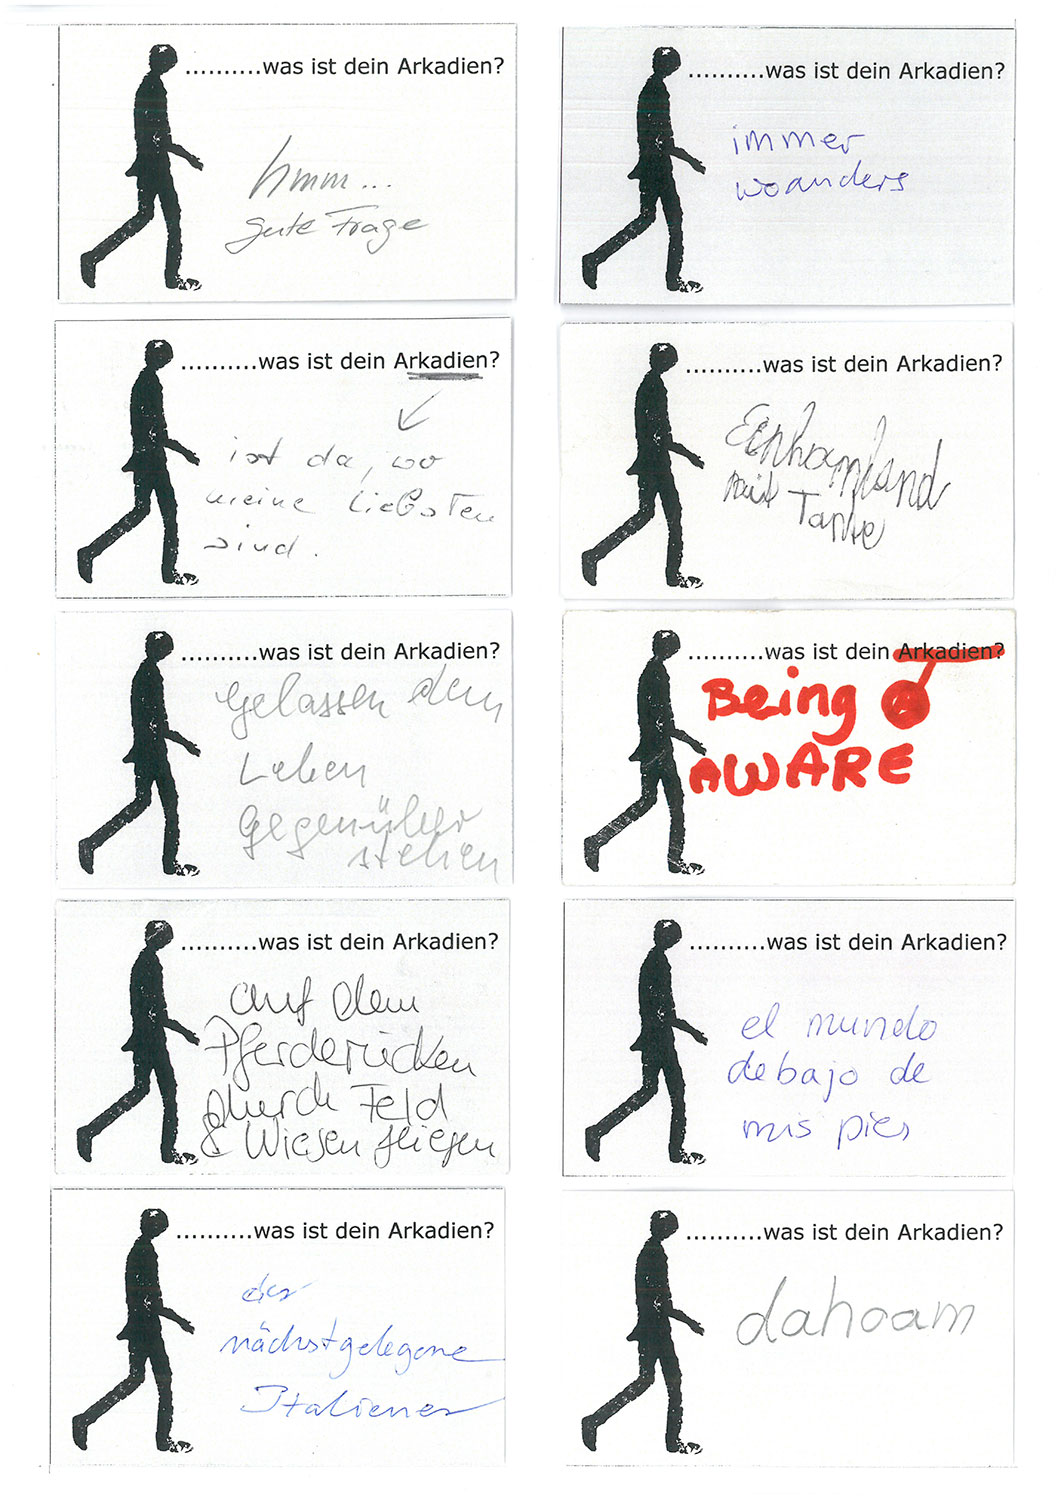 ..........was ist dein Arkadien?
hmm...
gute Frage
..........was ist dein Arkadien?
immer
woanders
..........was ist dein Arkadien?
ist da, wo
meine Liebsten
sind.
..........was ist dein Arkadien?
Einhornland
mit Tanke
..........was ist dein Arkadien?
gelassen dem
Leben
gegenüber
stehen
..........was ist dein Arkadien?
Being
AWARE
..........was ist dein Arkadien?
auf dem
Pferderücken
durch Feld
& Wiesen fliegen
..........was ist dein Arkadien?
el mundo
debajo de
mis pies
..........was ist dein Arkadien?
der
nächstgelegene
Italiener
..........was ist dein Arkadien?
dahoam